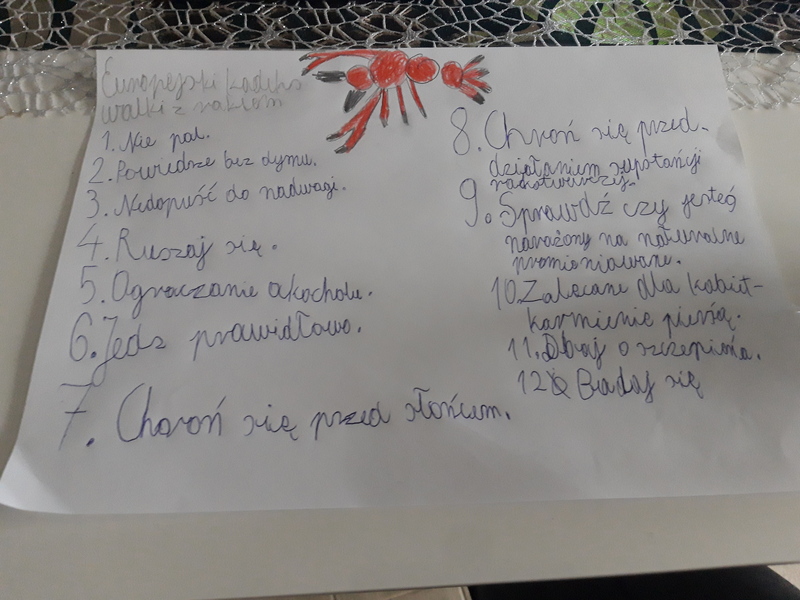 Europejski kodeks
walki z rakiem
1. Nie pal.
2. Powiedsze bez dymu.
3. Nedopuść do nadwagi.
4. Ruszaj się.
5. Ograczanie akocholu.
6. Jedz prawidłowo.
7. Choroń się przed słońcem.
8. Chroń się przed.
działaniem supstancji
rakotwurczej.
9. Sprawdź czy jesteś
narażony na naturalne
promioniawane.
10. Zalecane dla kobiet-
karmienie piersią.
11. Dbaj o szczepinia.
12 Badaj się